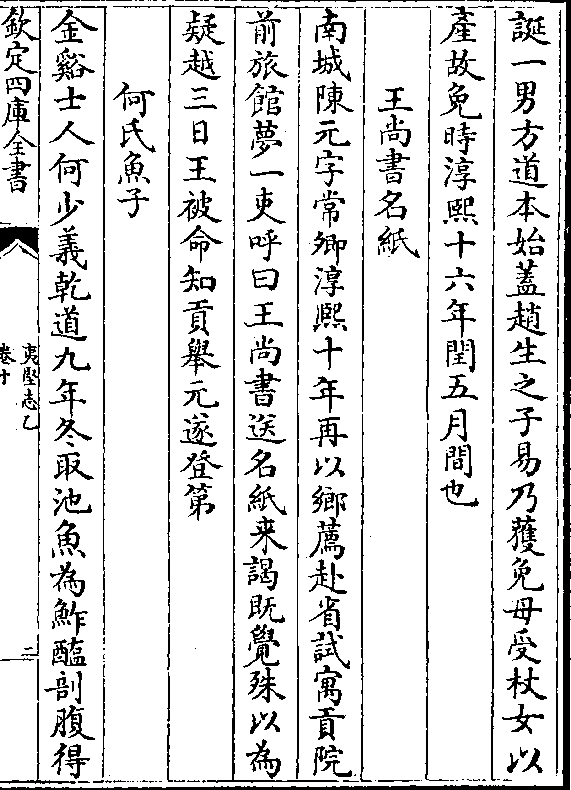 誕一男方道本始蓋趙生之子易乃獲免母受杖女以
產故免時淳熙十六年閏五月間也
王尚書名紙
南城陳元字常卿淳熙十年再以鄉薦赴省試寓貢院
前旅館夢一吏呼曰王尚書送名紙来謁既覺殊以為
疑越三日王被命知貢舉元遂登第
何氏魚子
金谿士人何少義乾道九年冬取池魚為鮓醢剖腹得
欽定四庫全書
夷堅志乙
卷十
二